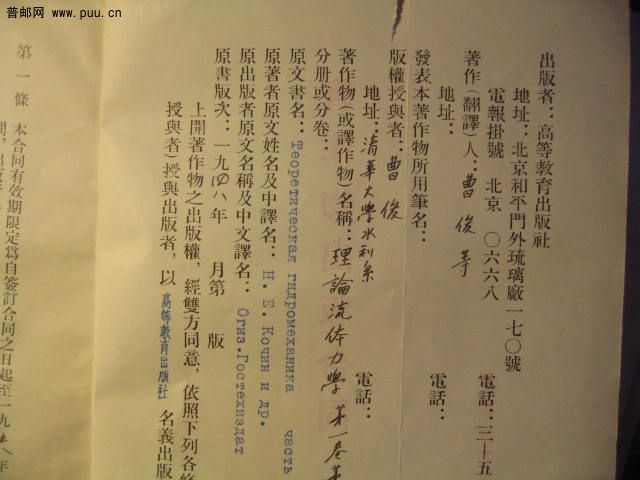 普邮网 www.puu.cn
出版者：高等教育出版社
地址：北京和平門外琉璃廠一七〇號
電報掛號 北京 〇六六八
電話：三·五
著作(翻譯)人：曹俊等
地址：
電話：
發表本著作物所用筆名：
版權授與者：曹俊
地址：清華大學水利系
電話：
著作物(或譯作物)名稱：理論流体力學 第一卷第
分册或分卷：
原文書名：Теоретическая гидромеханика часть
原著者原文姓名及中譯名：Н. Е. Кочин и др.
原出版者原文名稱及中文譯名：Огиз.Гостехиздат
原書版次：一九四八年 月第 版
上開著作物之出版權，經雙方同意，依照下列各條
授與者)授與出版者，以高等教育出版社名義出版
第一條 本合同有效期限定爲自簽訂合同之日起至一九 年